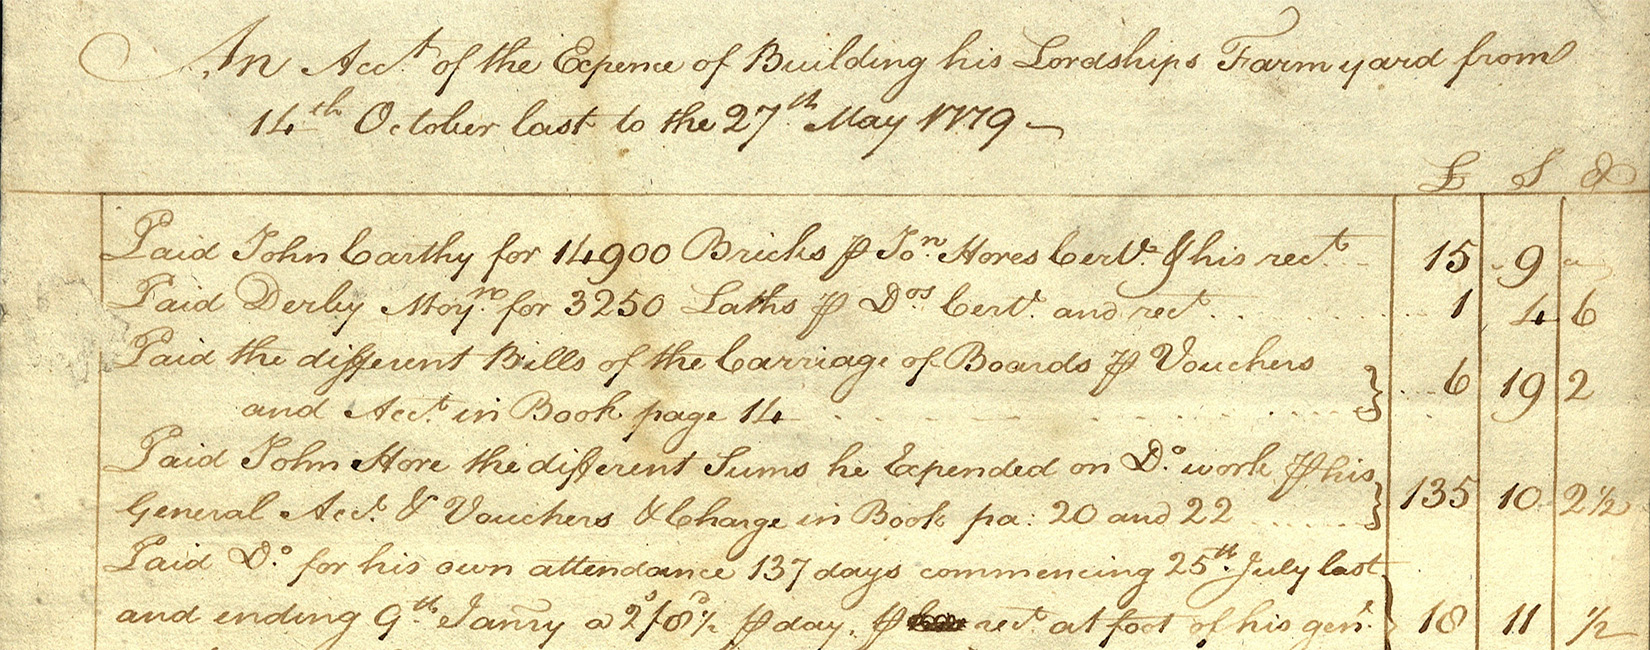 An Acct. of the Expence of Building his Lordships Farm yard from
14th October last to the 27th May 1779 —
£ S d
Paid John Carthy for 14900 Bricks ⅌ Jon. Hores Certe. & his rect. 15 9 "
Paid Derby Moyn. for 3250 Laths ⅌ Dos Cert. and rect. 1 4 6
Paid the different Bills of the Carriage of Boards ⅌ Vouchers
and Acct. in Book page 14 6 19 2
Paid John Hore the different Sums he Expended on Do. work ⅌ his
General Acct. & Vouchers & Charge in Book pa: 20 and 22 135 10 2½
Paid Do. for his own attendance 137 days commencing 25th. July last
and ending 9th. Janry a 2s/8d½ ⅌ day, ⅌ rect. at foot of his genl. 18 11 ½